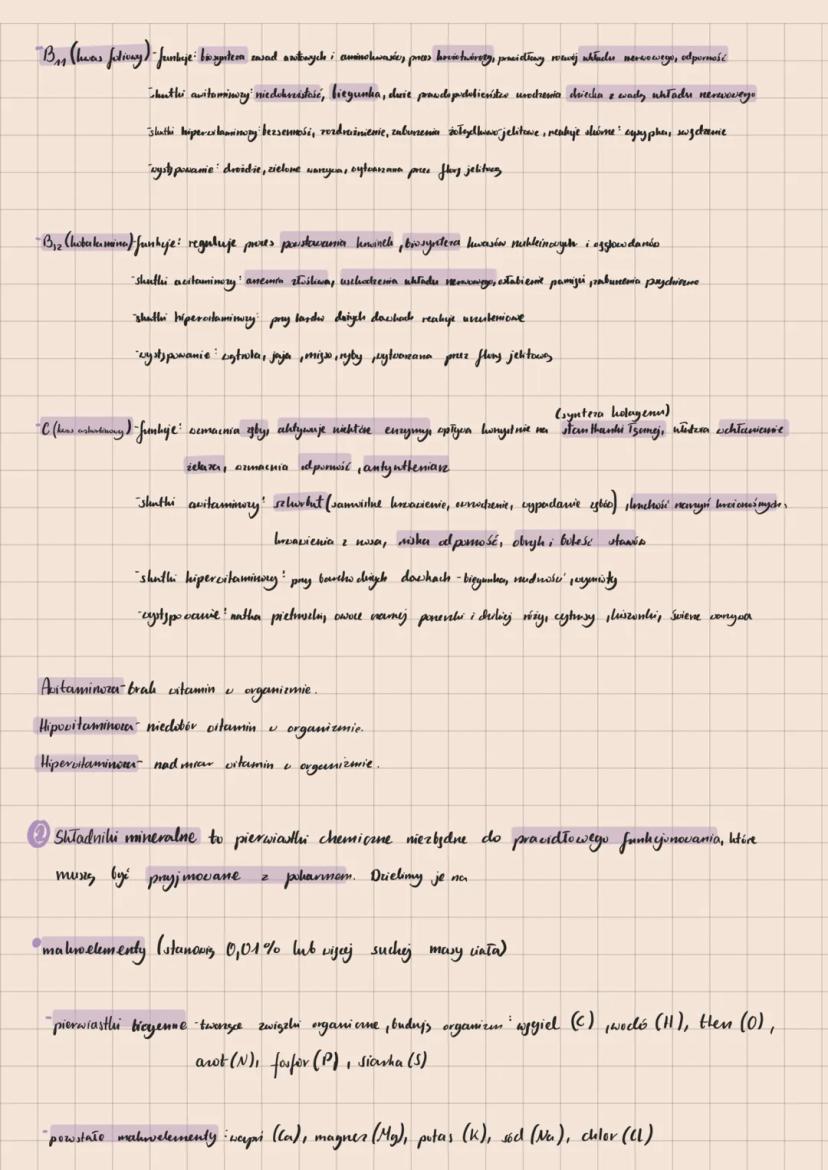 - B11 (kwas foliowy) - funkcje: biosynteza zasad azotowych i aminokwasów, proces krwiotwórczy, prawidłowy rozwój układu nerwowego, odporność
- skutki awitaminozy: niedokrwistość, biegunka, duże prawdopodobieństwo urodzenia dziecka z wadą układu nerwowego
- skutki hiperwitaminozy: bezsenność, rozdrażnienie, zaburzenia żołądkowo-jelitowe, reakcje skórne: wysypka, swędzenie
- występowanie: drożdże, zielone warzywa, wytwarzana przez florę jelitową
- B12 (kobalamina) - funkcje: reguluje proces powstawania krwinek, biosynteza kwasów nukleinowych i węglowodanów
- skutki awitaminozy: anemia złośliwa, uszkodzenia układu nerwowego, osłabienie pamięci, zaburzenia psychiczne
- skutki hiperwitaminozy: przy bardzo dużych dawkach reakcje uczuleniowe
- występowanie: wątroba, jaja, mięso, ryby, wytwarzana przez florę jelitową
(synteza kolagenu)
- C (kwas askorbinowy) - funkcje: wzmacnia zęby, aktywuje niektóre enzymy, wpływa korzystnie na stan tkanki łącznej, ułatwia wchłanianie
żelaza, wzmacnia odporność, antyutleniacz
- skutki awitaminozy: szkorbut (samoistne krwawienie, owrzodzenie, wypadanie zębów), kruchość naczyń krwionośnych,
krwawienia z nosa, niska odporność, obrzęk i bolesć stawów
- skutki hiperwitaminozy: przy bardzo dużych dawkach - biegunka, nudności, wymioty
- występowanie: natka pietruszki, owoce czarnej porzeczki i dzikiej róży, cytrusy, kiszonki, świeże warzywa
Awitaminoza - brak witamin w organizmie.
Hipowitaminoza - niedobór witamin w organizmie.
Hiperwitaminoza - nadmiar witamin w organizmie.
② Składniki mineralne to pierwiastki chemiczne niezbędne do prawidłowego funkcjonowania, które
muszą być przyjmowane z pokarmem. Dzielimy je na
• makroelementy (stanowią 0,01% lub więcej suchej masy ciała)
- pierwiastki biogenne - tworzące związki organiczne, budują organizm: węgiel (C), wodó (H), tlen (O),
azot (N), fosfor (P), siarka (S)
- pozostałe makroelementy: wapń (Ca), magnez (Mg), potas (K), sód (Na), chlor (Cl)